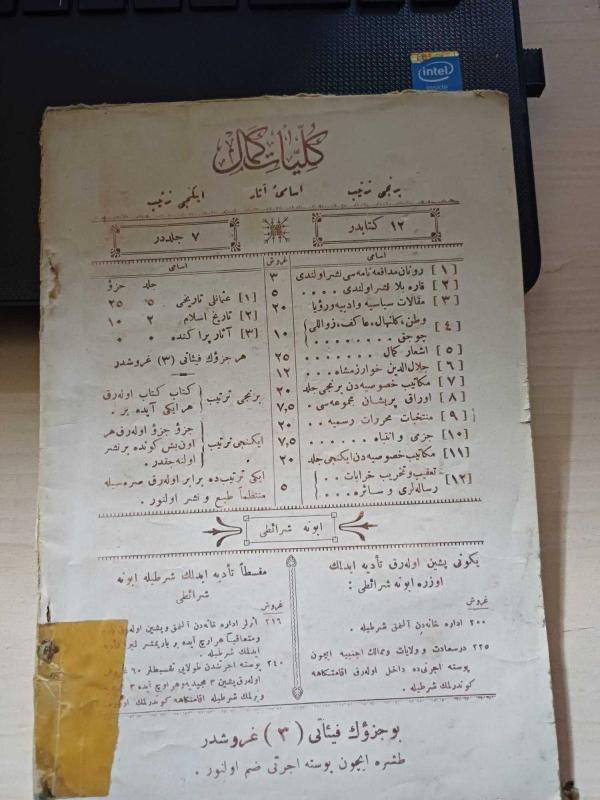 intel
inside
كليات كمال
برنجی ترتیب
اسامیٔ آثار
ایكنجی ترتیب
١٢ كتابدر
٧ جلددر
اسامی
غروش
[١] رونان مدافعه نامه سی نشر اولندی ٣
[٢] قاره بلا نشر اولندی . . . . ٥
[٣] مقالات سیاسیه وادبیه ورؤیا ٢٠
[٤] وطن، كلنهال، عاكف، زواللی چوجق . . . . . . . . ١٠
[٥] اشعار كمال . . . . . . . ٢٥
[٦] جلال الدین خوارزمشاه . . . ١٢
[٧] مكاتیب خصوصیه دن برنجی جلد ٢٠
[٨] اوراق پریشان مجموعه سی . ٧,٥
[٩] منتخبات محررات رسمیه . . ٢٠
[١٠] جزمی وانتباه . . . . . . ٧,٥
[١١] مكاتیب خصوصیه دن ایكنجی جلد ٢٠
[١٢] تعقیب وتخریب خرابات . . رساله لری وسائره . . . . ٥
اسامی
جلد جزؤ
[١] عثمانلی تاریخی ٥ ٢٥
[٢] تاریخ اسلام ٢ ١٠
[٣] آثار پراكنده ٠ ٠
هر جزؤك فیئاتی (٣) غروشدر
برنجی ترتیب
كتاب كتاب اوله رق
هر ایكی آیده بر .
ایكنجی ترتیب
جزؤ جزؤ اوله رق هر
اون بش كونده بر نشر
اولنه جقدر .
ایكی ترتیب ده برابر اوله رق صره سیله
منتظماً طبع و نشر اولنور .
ابونه شرائطی
یكونی پشین اوله رق تأدیه ایدلك
اوزره ابونه شرائطی :
غروش
٢٠٠ اداره خانه دن آلنمق شرطیله .
٢٢٥ درسعادت و ولایات وممالك اجنبیه ایچون
پوسته اجرتی ده داخل اوله رق اقامتكاهه
كوندرلمك شرطیله .
مقسطاً تأدیه ایدلك شرطیله ابونه
شرائطی
غروش
٢١٦ اداره خانه دن آلنمق وپشین اوله رق
ومتعاقباً هر اوچ آیده
ایدلمك شرطیله .
٢٤٠ پوسته اجرتندن طولایی تقسیطلر ٦٠
اوله رق پشین ٣ مجیدیه وهر اوچ آیده ٣
ویرلمك شرطیله اقامتكاهه كوندرلمك
بو جزؤك فیئاتی (٣) غروشدر
طشره ایچون پوسته اجرتی ضم اولنور .